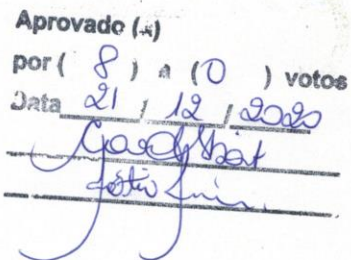 Aprovado (x)
por ( 8 ) a (0 ) votos
Data 21 / 12 / 2020